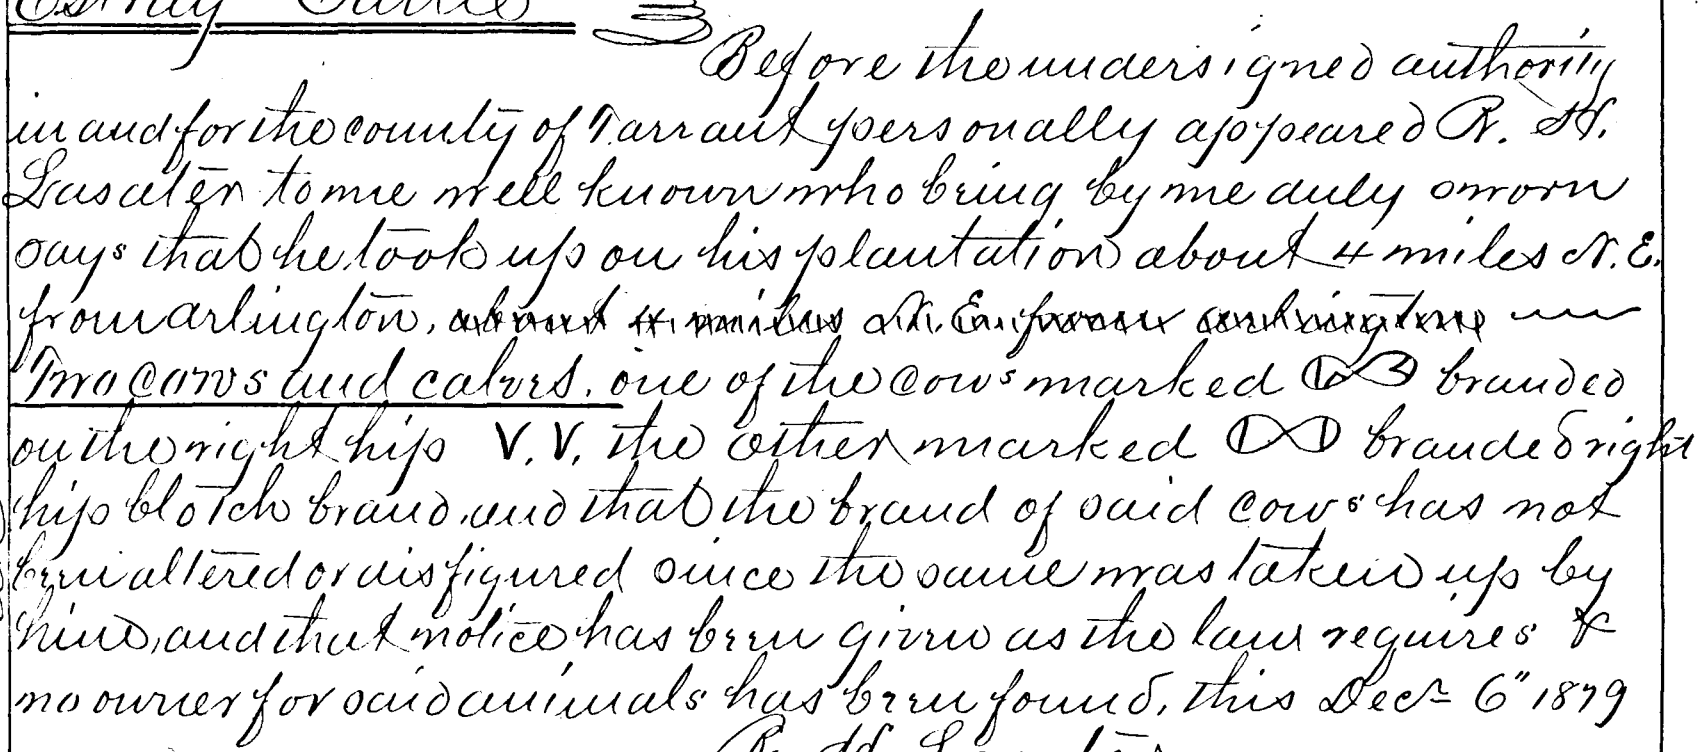 Estray Cattle
Before the undersigned authority
in and for the county of Tarrant personally appeared R. H.
Lasater to me well known who being by me duly sworn
says that he took up on his plantation about 4 miles N. E.
from arlington, about 4 miles N. E. from arlington
Two cows and calves. one of the cows marked branded
on the right hip V. V. the other marked branded right
hip blotch brand, and that the brand of said cows has not
been altered or disfigured since the same was taken up by
him, and that notice has been given as the law requires &
no owner for said animals has been found, this Decr 6" 1879
R. H. Lasater